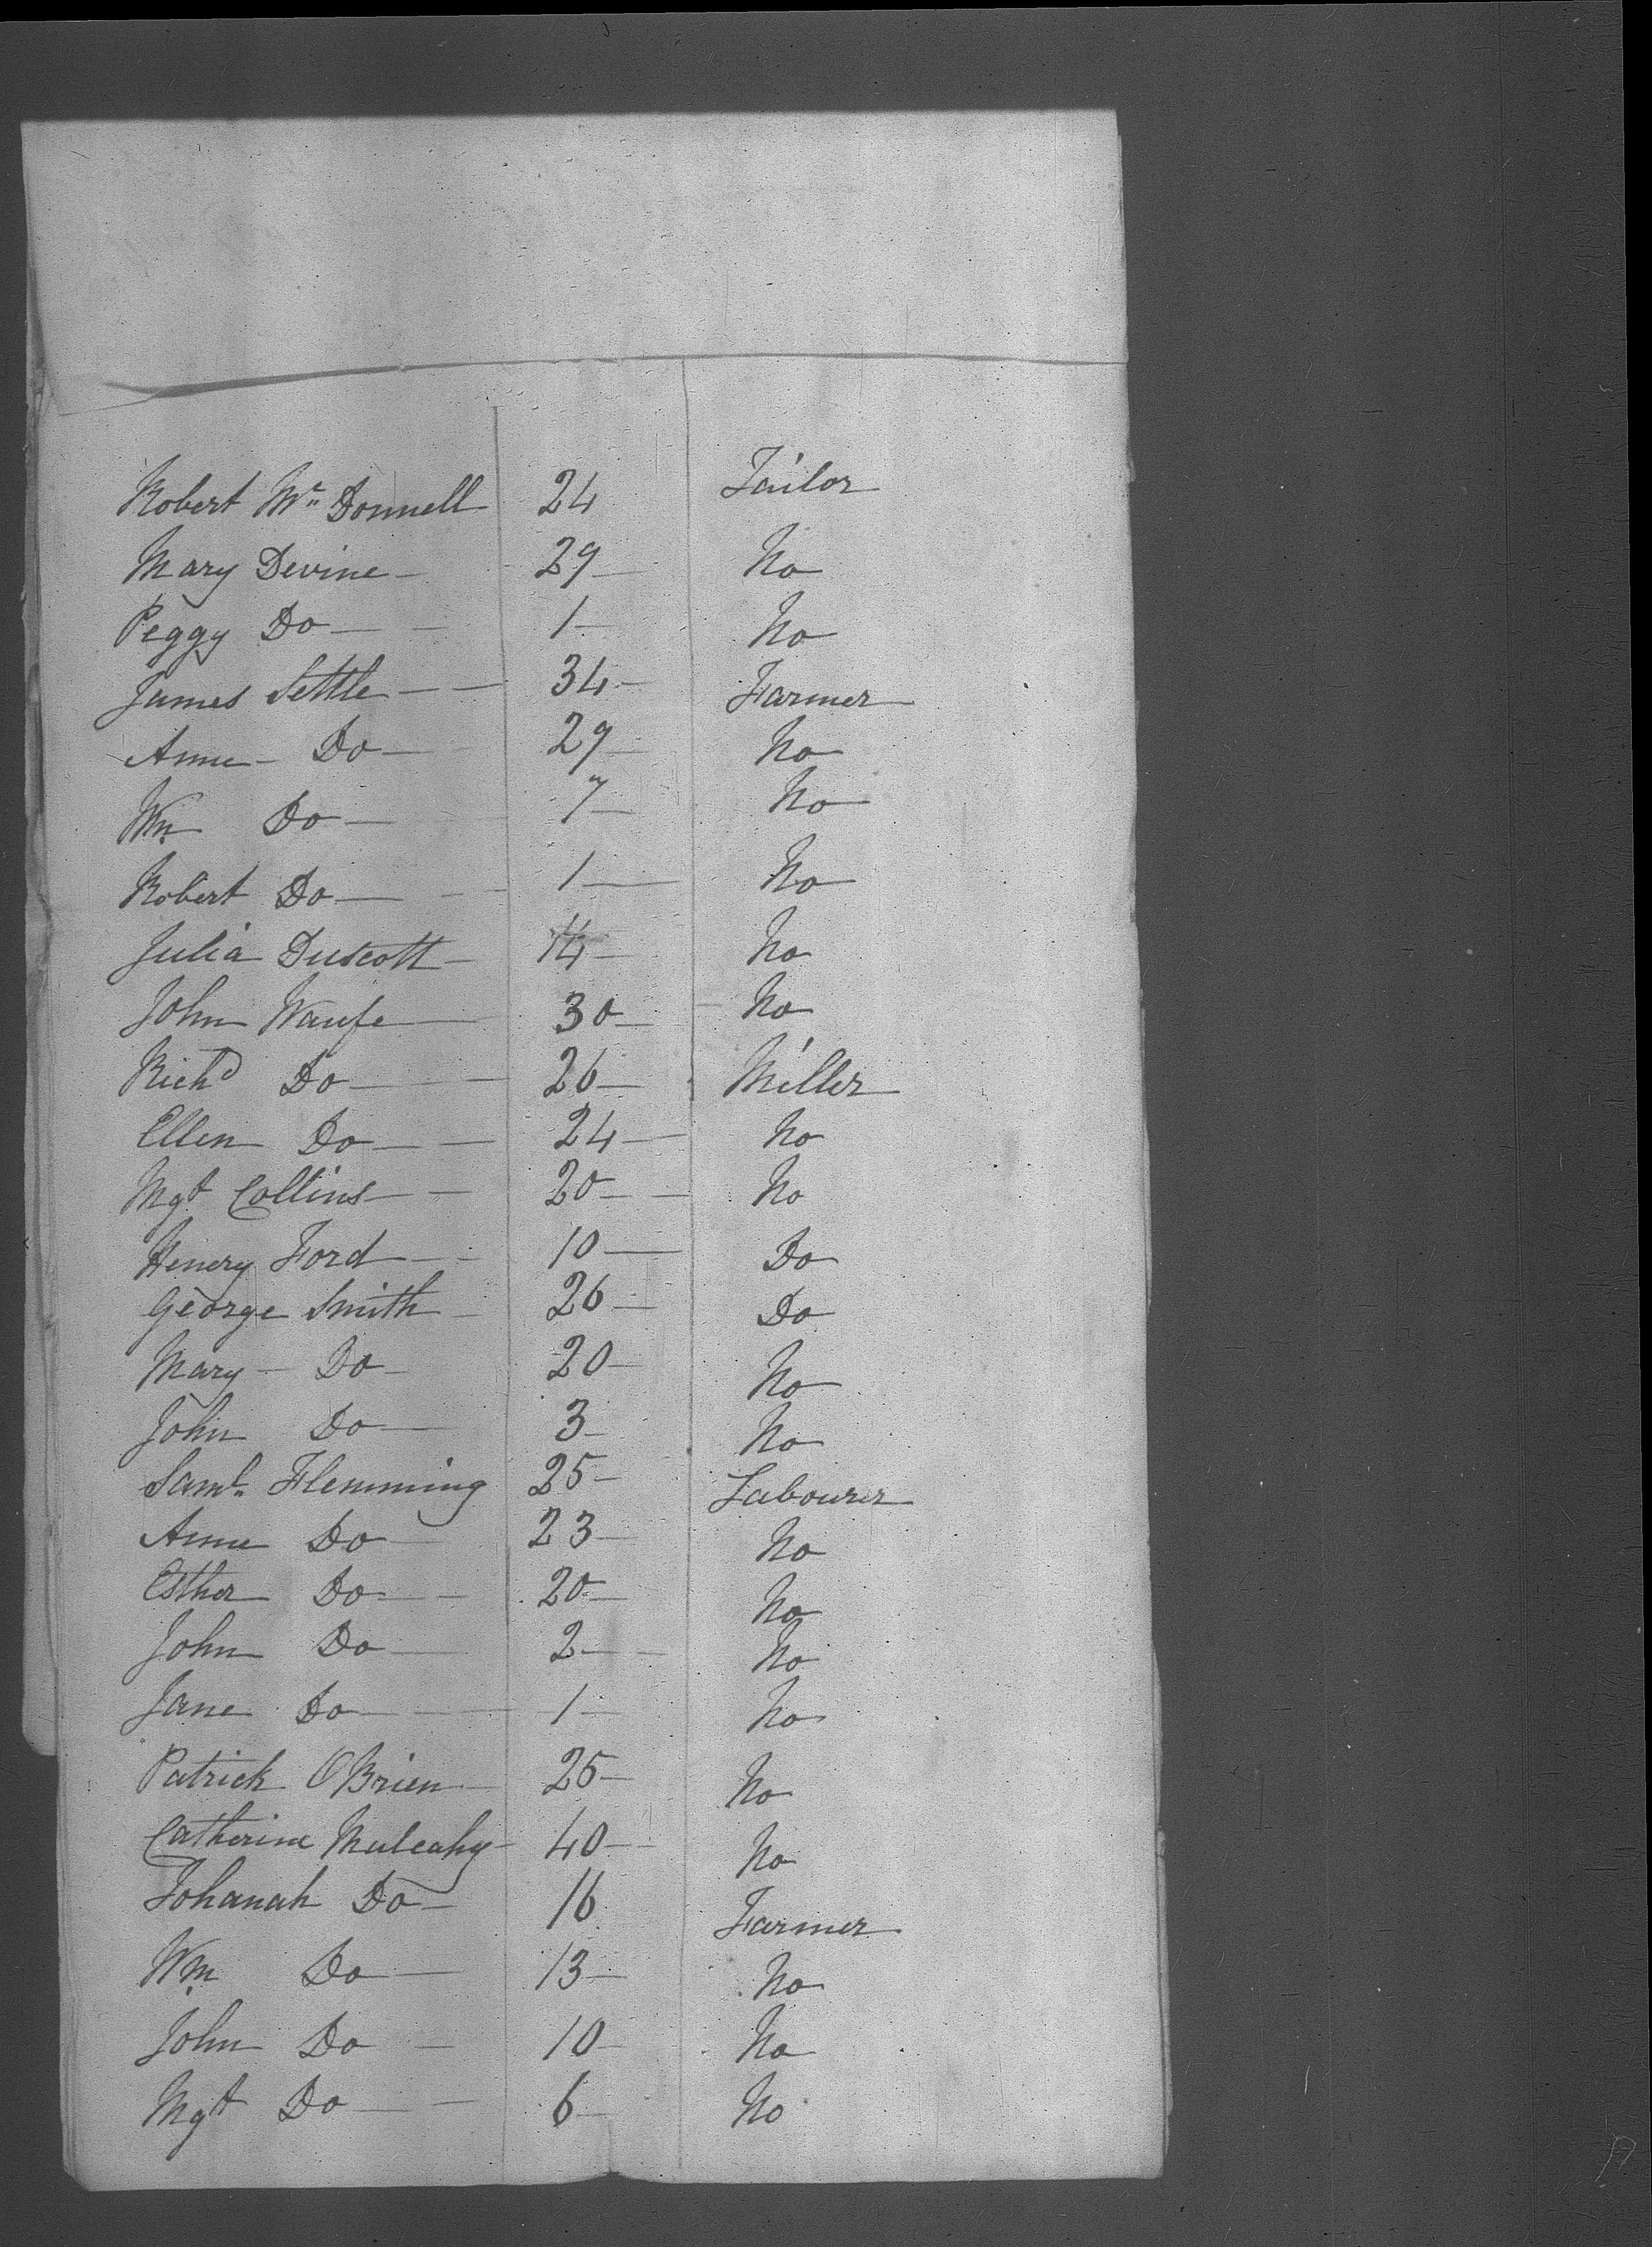 Robert Mc Donnell 24 Tailor
Mary Devine 29 No
Peggy Do 1 No
James Settle 34 Farmer
Anne Do 29 No
Wm Do 7 No
Robert Do 1 No
Julia 14 No
John 30 No
Richd Do 26 Miller
Ellen Do 24 No
Mgt Collins 20 No
Henery Ford 10 Do
George Smith 26 Do
Mary Do 20 No
John Do 3 No
Saml. Flemming 25 Labourer
Anne Do 23 No
Esther Do 20 No
John Do 2 No
Jane Do 1 No
Patrick O'Brien 25 No
Catherine Mulcahy 40 No
Johanah Do 16 Farmer
Wm Do 13 No
John Do 10 No
Mgt Do 6 No